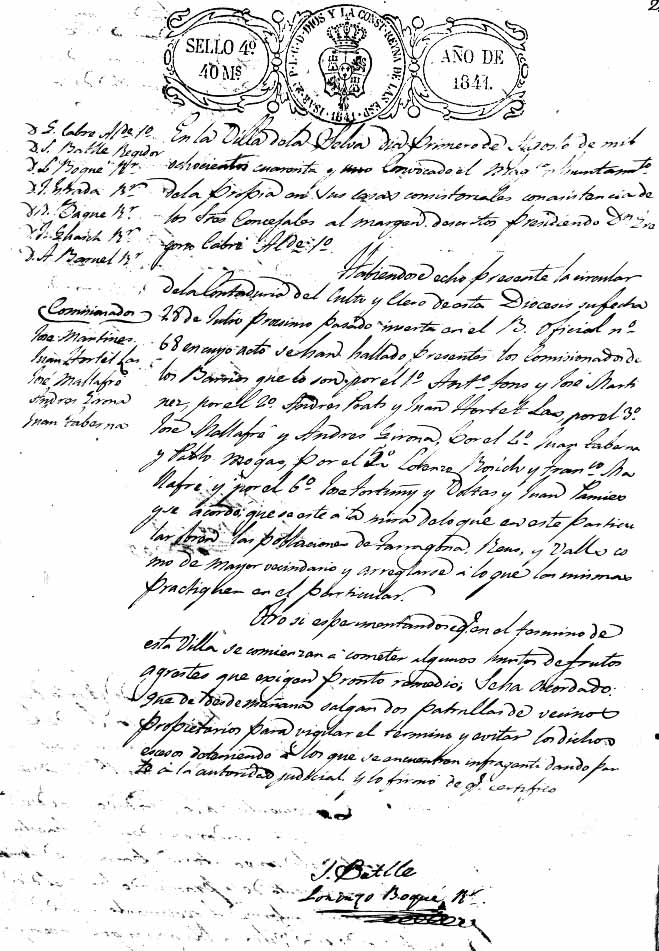 SELLO 4º
40 Mˢ
ISAB. 2ª P. L. G. D. DIOS Y LA CONST. REINA DE LAS ESP.
1841
AÑO DE
1841.
D. G. Cabré Alde. 1º
D. J. Batlle Regidor
D. L. Boqué Rr.
D. J. Estrada Rr.
D. Baque Rr.
D. J. Rr.
D. A. Rr.
En la Villa de la Selva dia Primero de Agosto de mil
ochocientos cuarenta y uno Convocado el Magco. Ayuntamto.
de la Propia en sus casas consistoriales con asistencia de
los Sres Concejales al margen descritos Presidiendo Dn. Gre
gorio Cabré Alde. 1º
Habiendose echo Presente la circular
de la Contaduria del Culto y Clero de esta Diocesis su fecha
28 de Julio Proximo Pasado inserta en el B. Oficial nº
68 en cuyo acto se han hallado Presentes los Comisionados de
los Barrios que lo son, por el 1º Anto. y José Marti
nez, por el 2º Andres Prats y Juan Hortet Las, por el 3º
José Mallafré y Andres Girona, Por el 4º Juan Taberna
y Pablo Mogas, por el 5º Lorenzo Rosich y Franco. Ma
llafré y por el 6º Jose Fortuny y y Juan Pamies
y se acordó que se este á la mira de lo que en este Particu
lar obren las poblaciones de Tarragona, Reus, y Valls co
mo de mayor vecindario y arreglarse á lo que las mismas
Practiquen en el Particular.
Comisionados
Jose Martines
Juan Hortet Las
José Mallafré
Andres Girona
Juan Taberna
Otro si esperimentandose q. en el termino de
esta Villa se comienzan á cometer algunos hurtos de frutos
agrestes que exigen Pronto remedio; Se ha acordado:
que desde mañana salgan dos patrullas de vecinos
Propietarios para vigilar el termino y evitar los dichos
escesos deteniendo á los que se encuentren infraganti dando par
te á la autoridad judicial. y lo firmó de q. certifico
J. Batlle
Lorenzo Boque Rr.